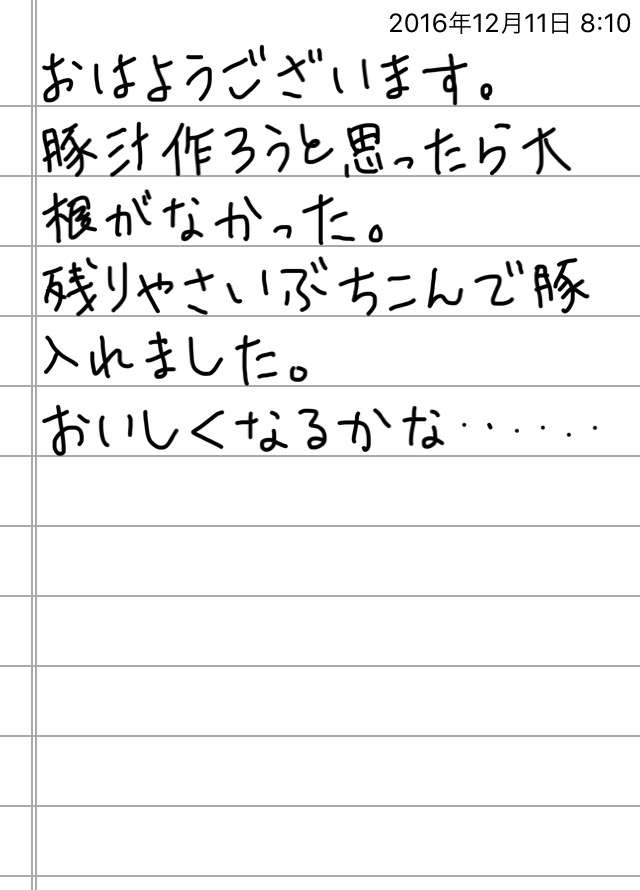 2016年12月11日 8:10
おはようございます。
豚汁作ろうと思ったら大
根がなかった。
残りやさいぶちこんで豚
入れました。
おいしくなるかな……